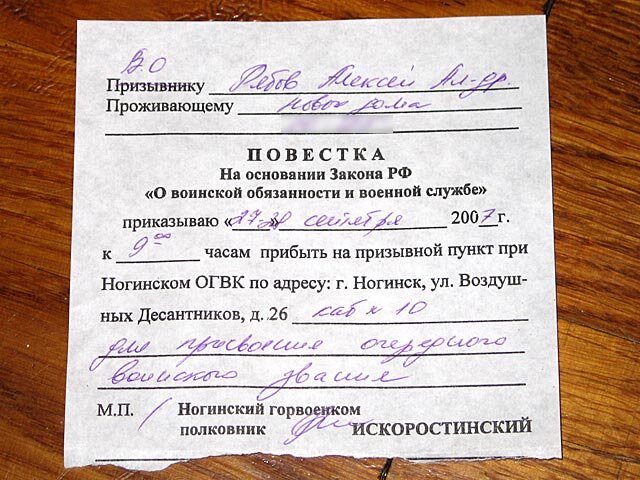 В.О
Призывнику Рябов Алексей Ал-др.
Проживающему новые дома
ПОВЕСТКА
На основании Закона РФ
«О воинской обязанности и военной службе»
приказываю «27-28» сентября 2007 г.
к 9 00 часам прибыть на призывной пункт при
Ногинском ОГВК по адресу: г. Ногинск, ул. Воздуш-
ных Десантников, д. 26 каб N 10
для присвоения очередного
воинского звания
М.П. Ногинский горвоенком
полковник ИСКОРОСТИНСКИЙ